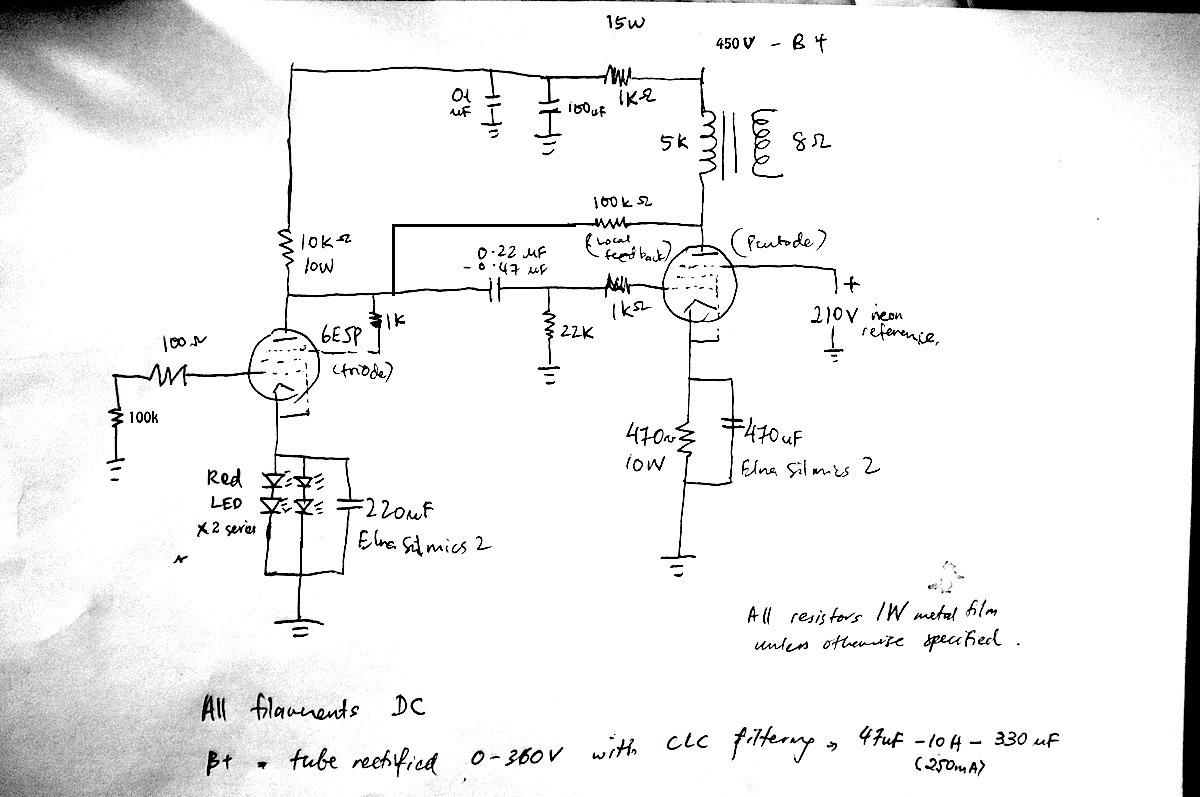 15W
450V - B+
0.1
uF
100uF
1KΩ
5K
8Ω
100KΩ
(Local
feedback)
(Pentode)
10KΩ
10W
0.22 uF
- 0.47 uF
1KΩ
+
210V neon
reference.
1K
22K
6E5P
(triode)
100Ω
100k
470Ω
10W
470uF
Elna Silmics 2
Red
LED
x2 series
220uF
Elna Silmics 2
All resistors 1W metal film
unless otherwise specified.
All filaments DC
B+ = tube rectified 0-360V with CLC filtering → 47uF -10H- 330uF
(250mA)